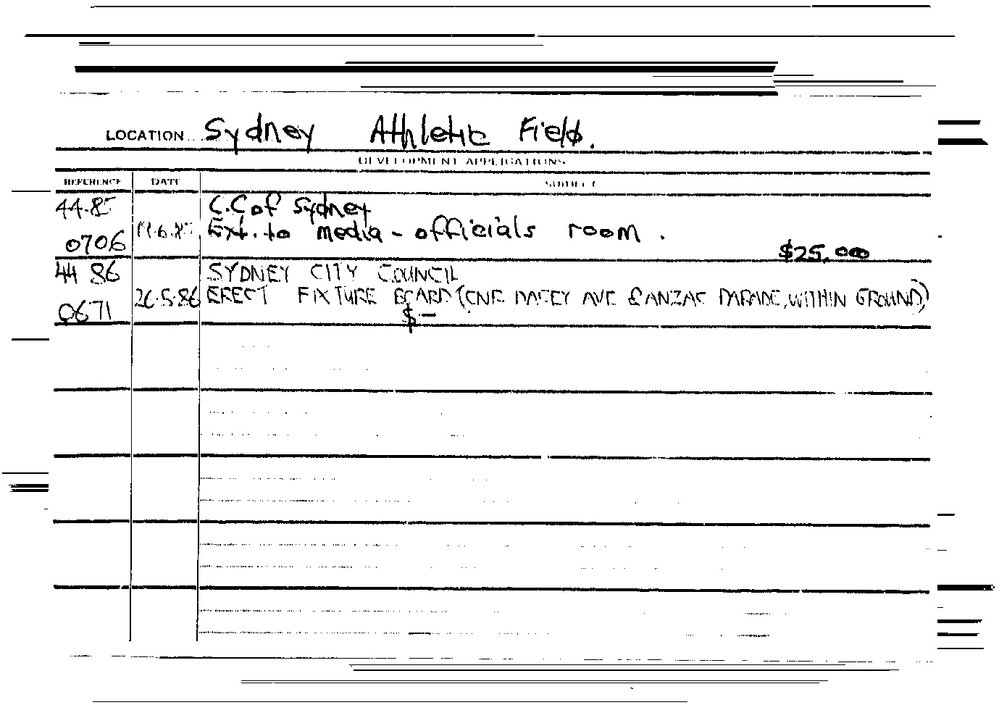 LOCATION... Sydney Athletic Field.
DEVELOPMENT APPLICATIONS
REFERENCE DATE SUBJECT
44-85 C.C of Sydney
0706 19.6.85 Ext. to media - officials room.
$25,000
44 86 SYDNEY CITY COUNCIL
0671 26.5.86 ERECT FIXTURE BOARD (CNR DACEY AVE & ANZAC PARADE, WITHIN GROUND)
$-